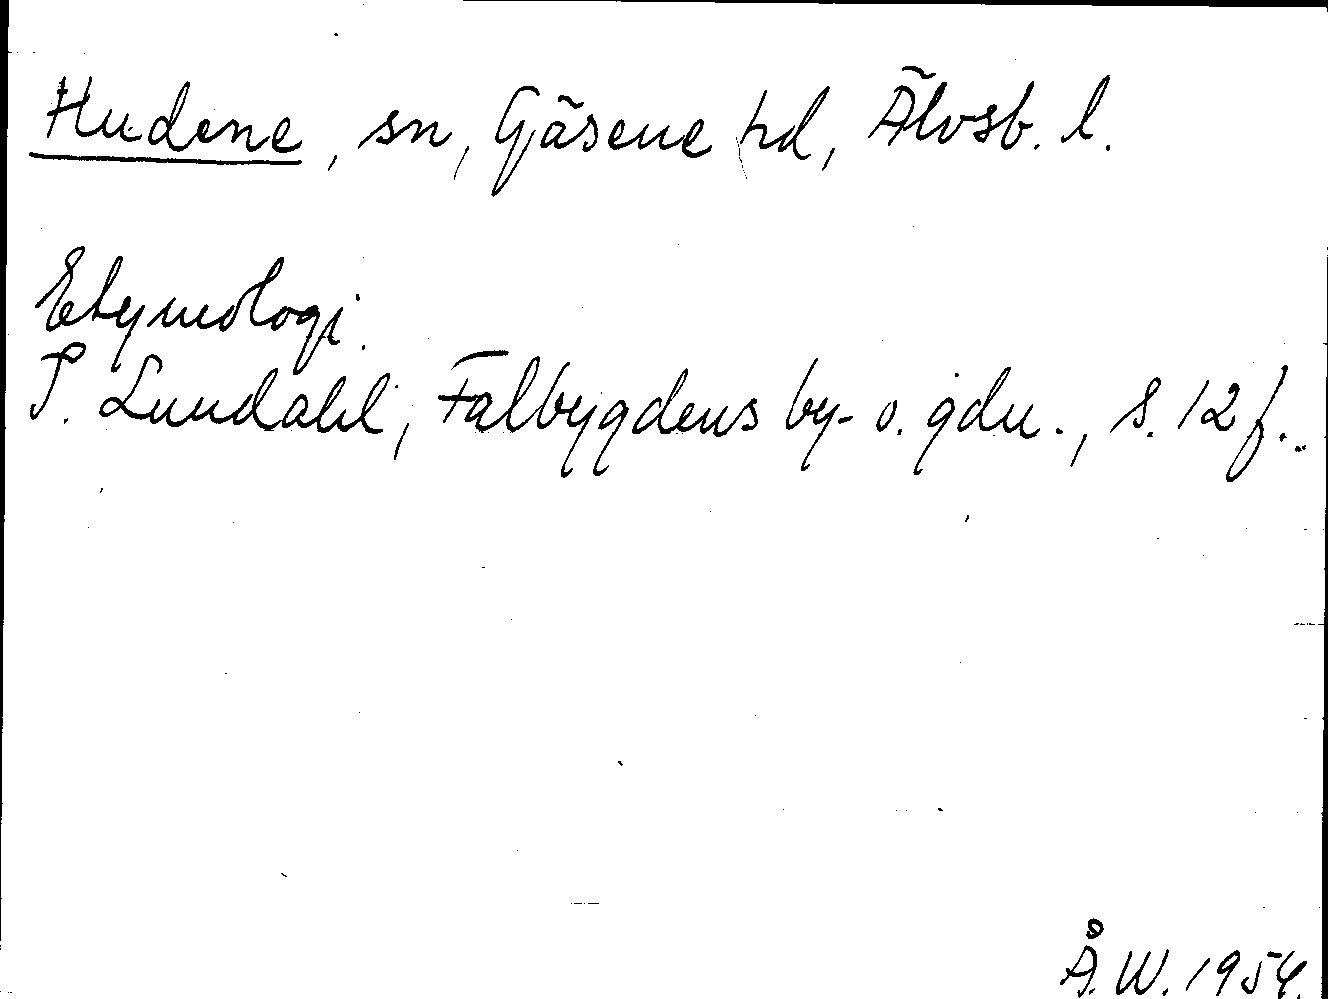 Hudene, sn, Gäsene hd, Älvsb. l.
Etymologi.
P. Lundahl, Falbygdens by- o. gdn., s. 12 f..
Å. W. 1954.